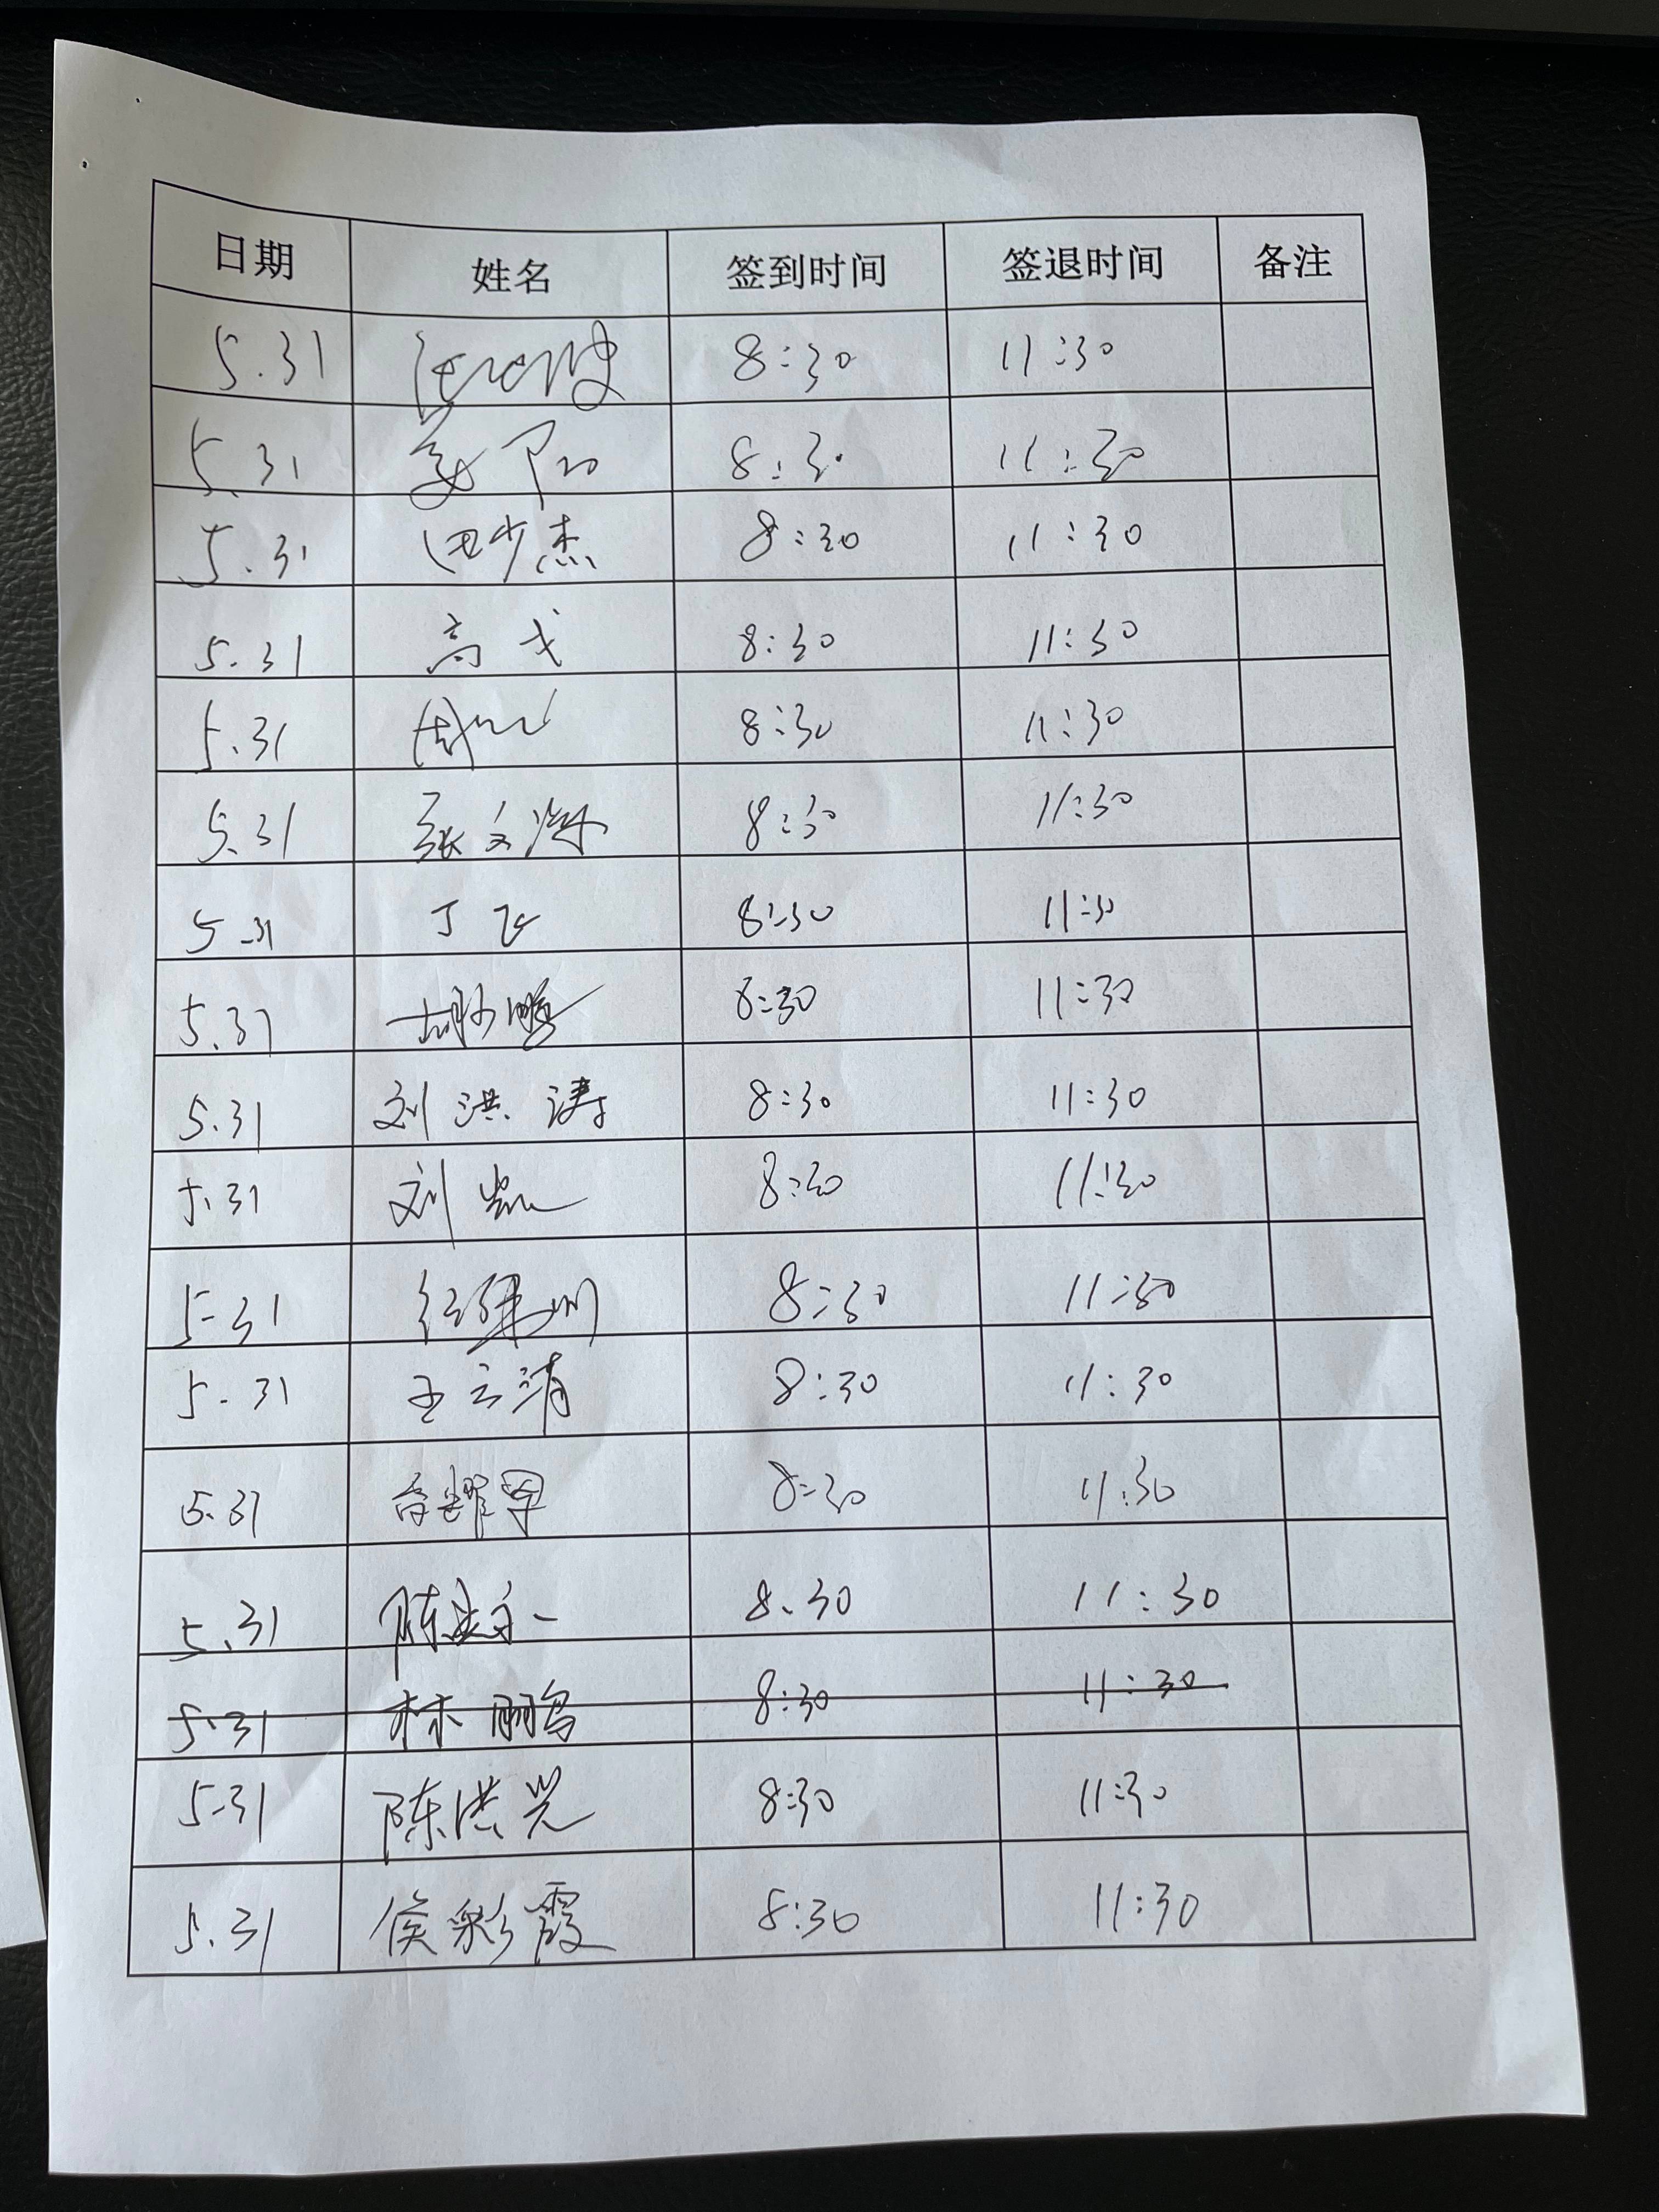 日期 姓名 签到时间 签退时间 备注
5.31 8:30 11:30
5.31 8:30 11:30
5.31 田少杰 8:30 11:30
5.31 高戈 8:30 11:30
5.31 周 8:30 11:30
5.31 张文 8:30 11:30
5.31 丁飞 8:30 11:30
5.31 胡 鹏 8:30 11:30
5.31 刘洪涛 8:30 11:30
5.31 刘凯 8:30 11:30
5-31 8:30 11:30
5.31 王云清 8:30 11:30
5.31 8:30 11:30
5.31 陈 8:30 11:30
5.31 林鹏 8:30 11:30
5-31 陈洪光 8:30 11:30
5.31 侯彩霞 8:30 11:30